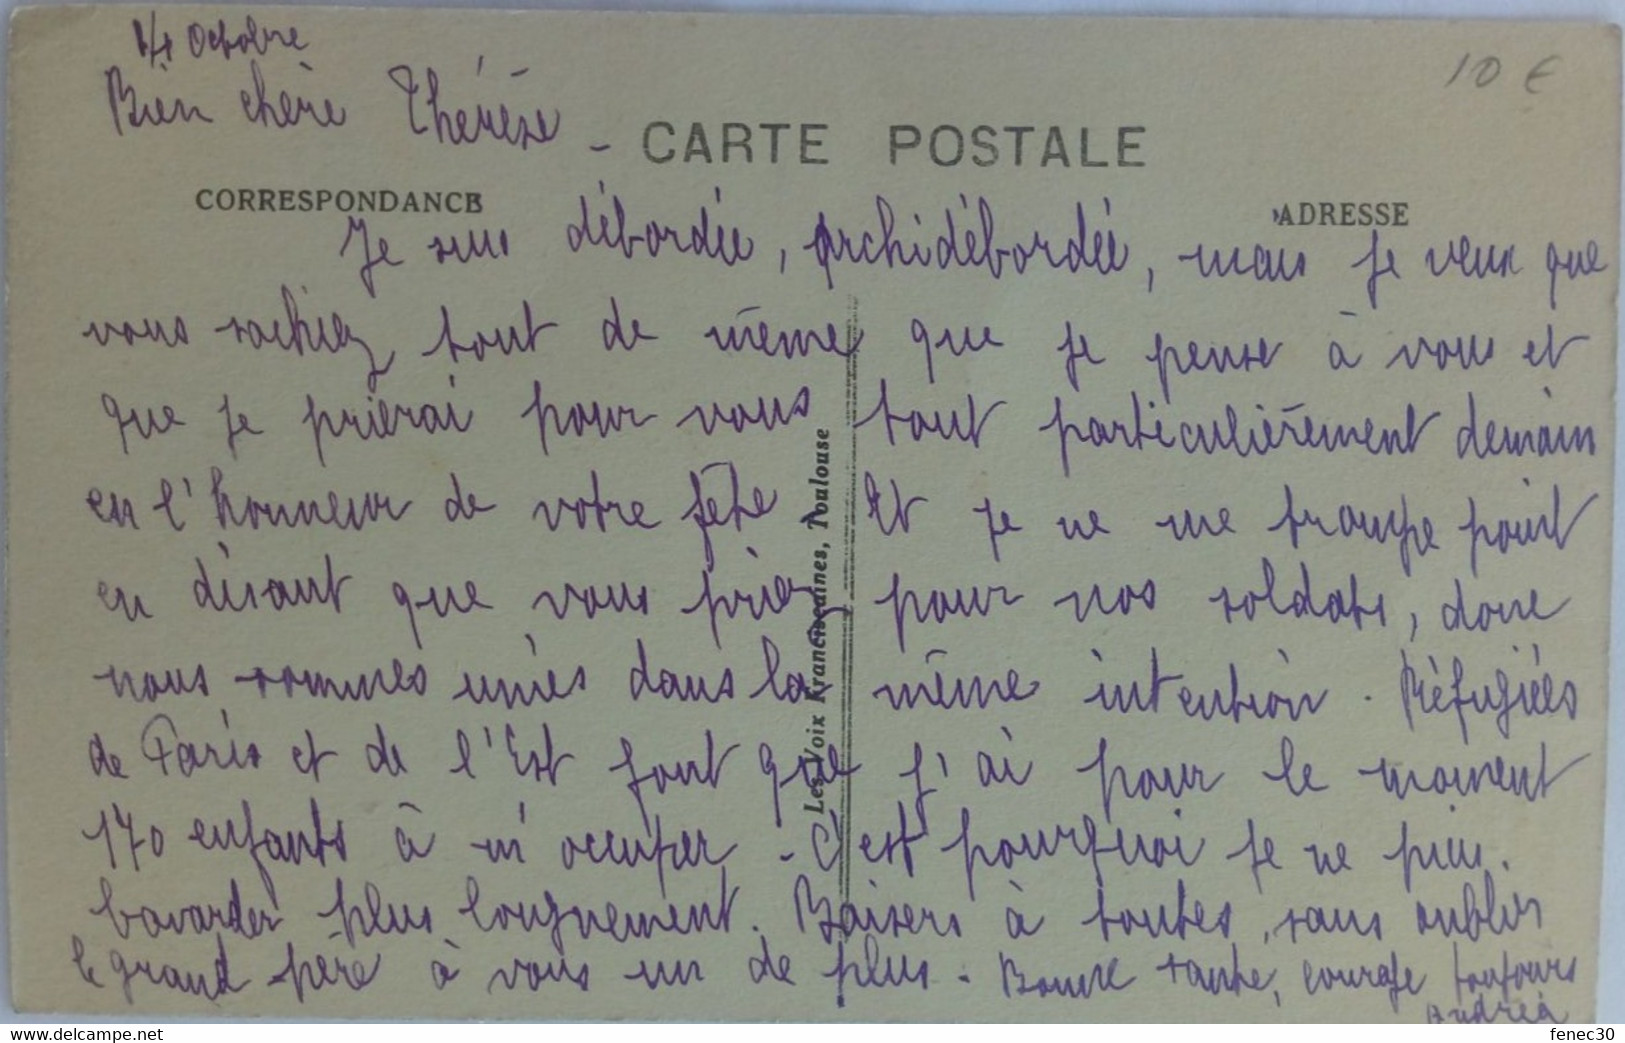 14 Octobre
10 €
Bien chère Thérèse -
CARTE POSTALE
CORRESPONDANCE
ADRESSE
Je suis débordée, archidébordée, mais je veux que
vous sachiez tout de même que je pense à vous et
que je prierai pour vous tout particulièrement demain
en l'honneur de votre fête. Et je ne me trompe point
en disant que vous priez pour nos soldats, donc
nous sommes unies dans la même intention. Réfugiées
de Paris et de l'Est font que j'ai pour le moment
170 enfants à m'occuper - C'est pourquoi je ne puis
bavarder plus longuement. Baisers à toutes, sans oublier
le grand-père à vous un de plus - Bonne santé, courage toujours
Andréa
Les Voix Franciscaines, Toulouse
www.delcampe.net
fenec30